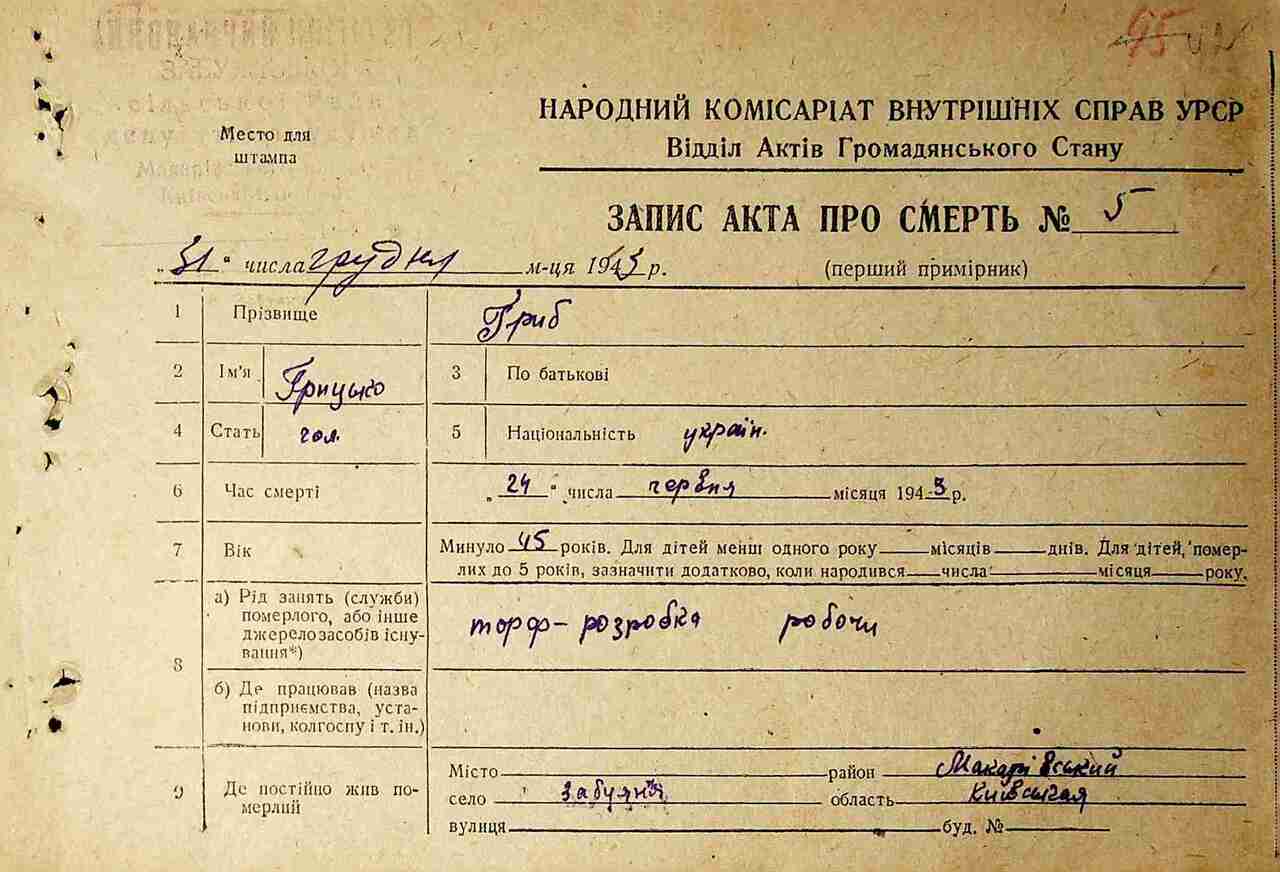 95
Место для
штампа
НАРОДНИЙ КОМІСАРІАТ ВНУТРІШНІХ СПРАВ УРСР
Відділ Актів Громадянського Стану
ЗАПИС АКТА ПРО СМЕРТЬ № 5
„31“ числа грудня м-ця 1943 р. (перший примірник)
1 Прізвище Гриб
2 Ім'я Грицько 3 По батькові
4 Стать чол. 5 Національність україн.
6 Час смерті „24“ числа червня місяця 1943 р.
7 Вік Минуло 45 років. Для дітей менш одного року місяців днів. Для дітей, помер-
лих до 5 років, зазначити додатково, коли народився числа місяця року.
8 а) Рід занять (служби)
померлого, або інше
джерело засобів існу-
вання*) торф-розробка робочи
б) Де працював (назва
підприємства, уста-
нови, колгоспу і т. ін.)
9 Де постійно жив по-
мерлий
Місто район Макарівський
село Забуяння область Київська
вулиця буд. №